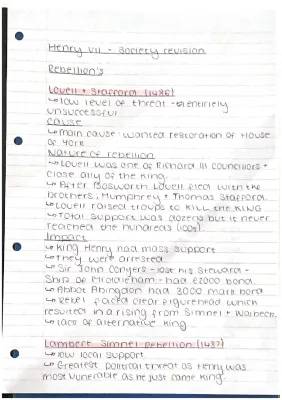 Henry VII - Society revision
Rebellion's
Lovell + Stafford (1486)
↳ low level of threat - entirely
unsuccessful
Cause
↳ main cause: wanted restoration of House
of York
Nature of rebellion
↳ Lovell was one of Richard III councillors +
close ally of the king.
↳ After Bosworth Lovell fled with the
brothers, Humphrey + Thomas Stafford.
↳ Lovell raised troups to KILL the KING
↳ Total support was dozens but it never
reached the hundreds (100s).
Impact
↳ King Henry had mass support
↳ They were arrested.
↳ Sir John Conyers - lost his Steward-
Ship of Middleham - had £2000 bond.
↳ Abbot Abingdon had 3000 mark bond
↳ Rebel faced clear figurehead which
resulted in a rising from Simnel + Warbeck.
↳ lack of alternative king
Lambert Simnel rebellion (1487)
↳ low local support
↳ Greatest political threat as Henry was
most vunerable as he just came king.